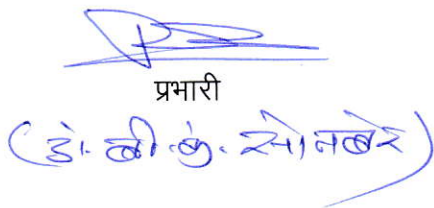 प्रभारी
(डॉ. बी.के. सोनबेरे)